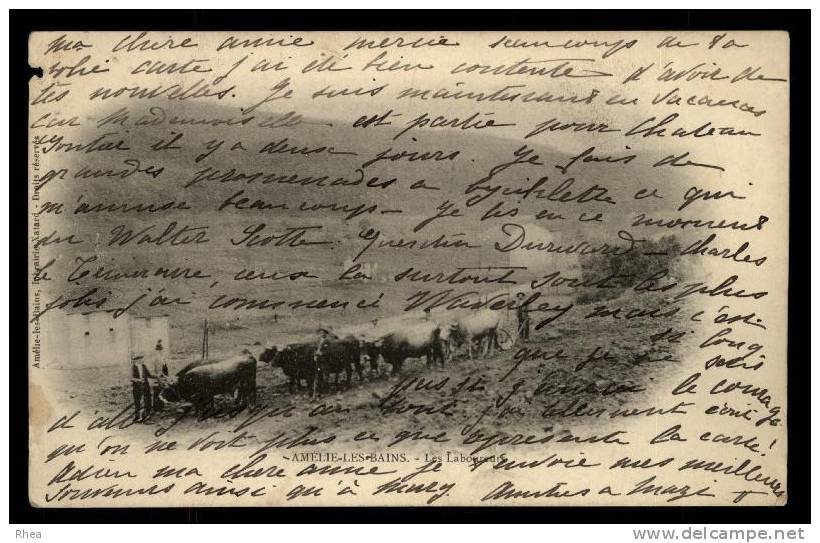 ma chère annie merci beaucoup de ta
jolie carte j'ai été bien contente d'avoir de
tes nouvelles. Je suis maintenant en vacances
car Mademoiselle est partie pour Chateau
Gontier il y a deux jours. Je fais de
grandes promenades a byciklette ce qui
m'amuse beaucoup. Je lis en ce moment
du Walter Scott. Quentin Durward - Charles
le Temeraire, ceux la surtout sont les plus
jolis j'ai commencé Waverley mais c'est
si long
que je ne suis
pas si j'aurai le courage
d'aller jusqu'au bout j'ai tellement écrit
qu'on ne voit plus ce que represente la carte!
Adieu ma chère annie je t'envoie mes meilleurs
souvenirs ainsi qu'à Mary. Amitiés a
AMÉLIE-LES-BAINS. - Les Laboureurs
Amélie-les-Bains, Librairie Xatard - Droits réservés
Rhea
www.delcampe.net